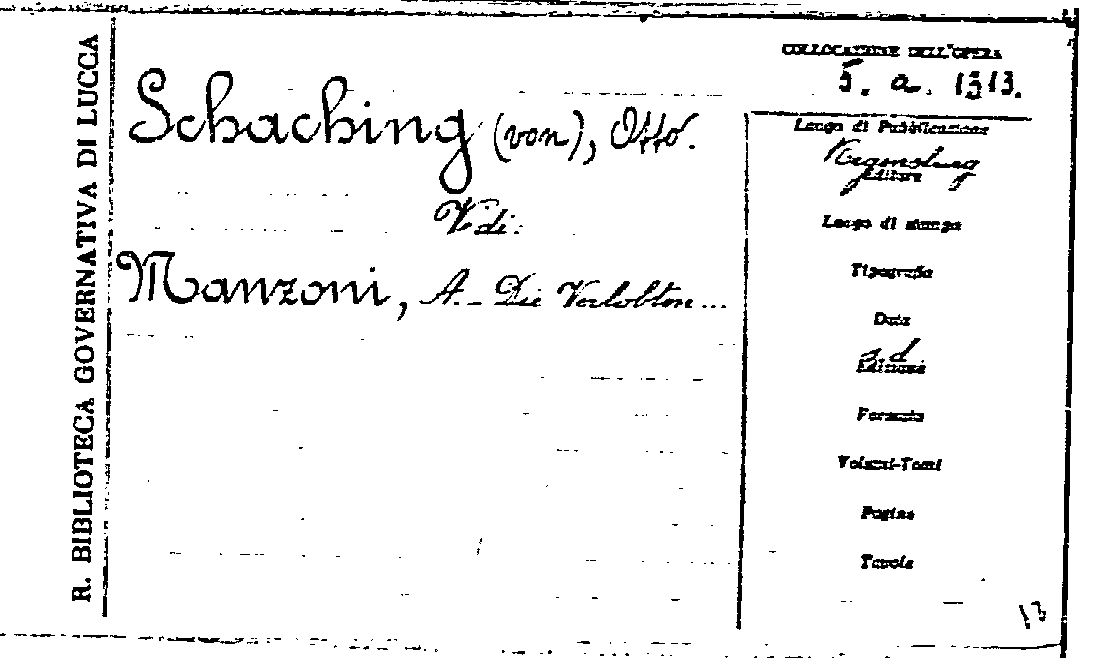 R. BIBLIOTECA GOVERNATIVA DI LUCCA
Schaching (von), Otto.
Vedi:
Manzoni, A. - Die Verlobten...
COLLOCAZIONE DELL'OPERA
5. a. 1313.
Luogo di Pubblicazione
Regensburg
Editore
Luogo di stampa
Tipografia
Data
s. d.
Edizione
Formato
Volumi-Tomi
Pagine
Tavole
13